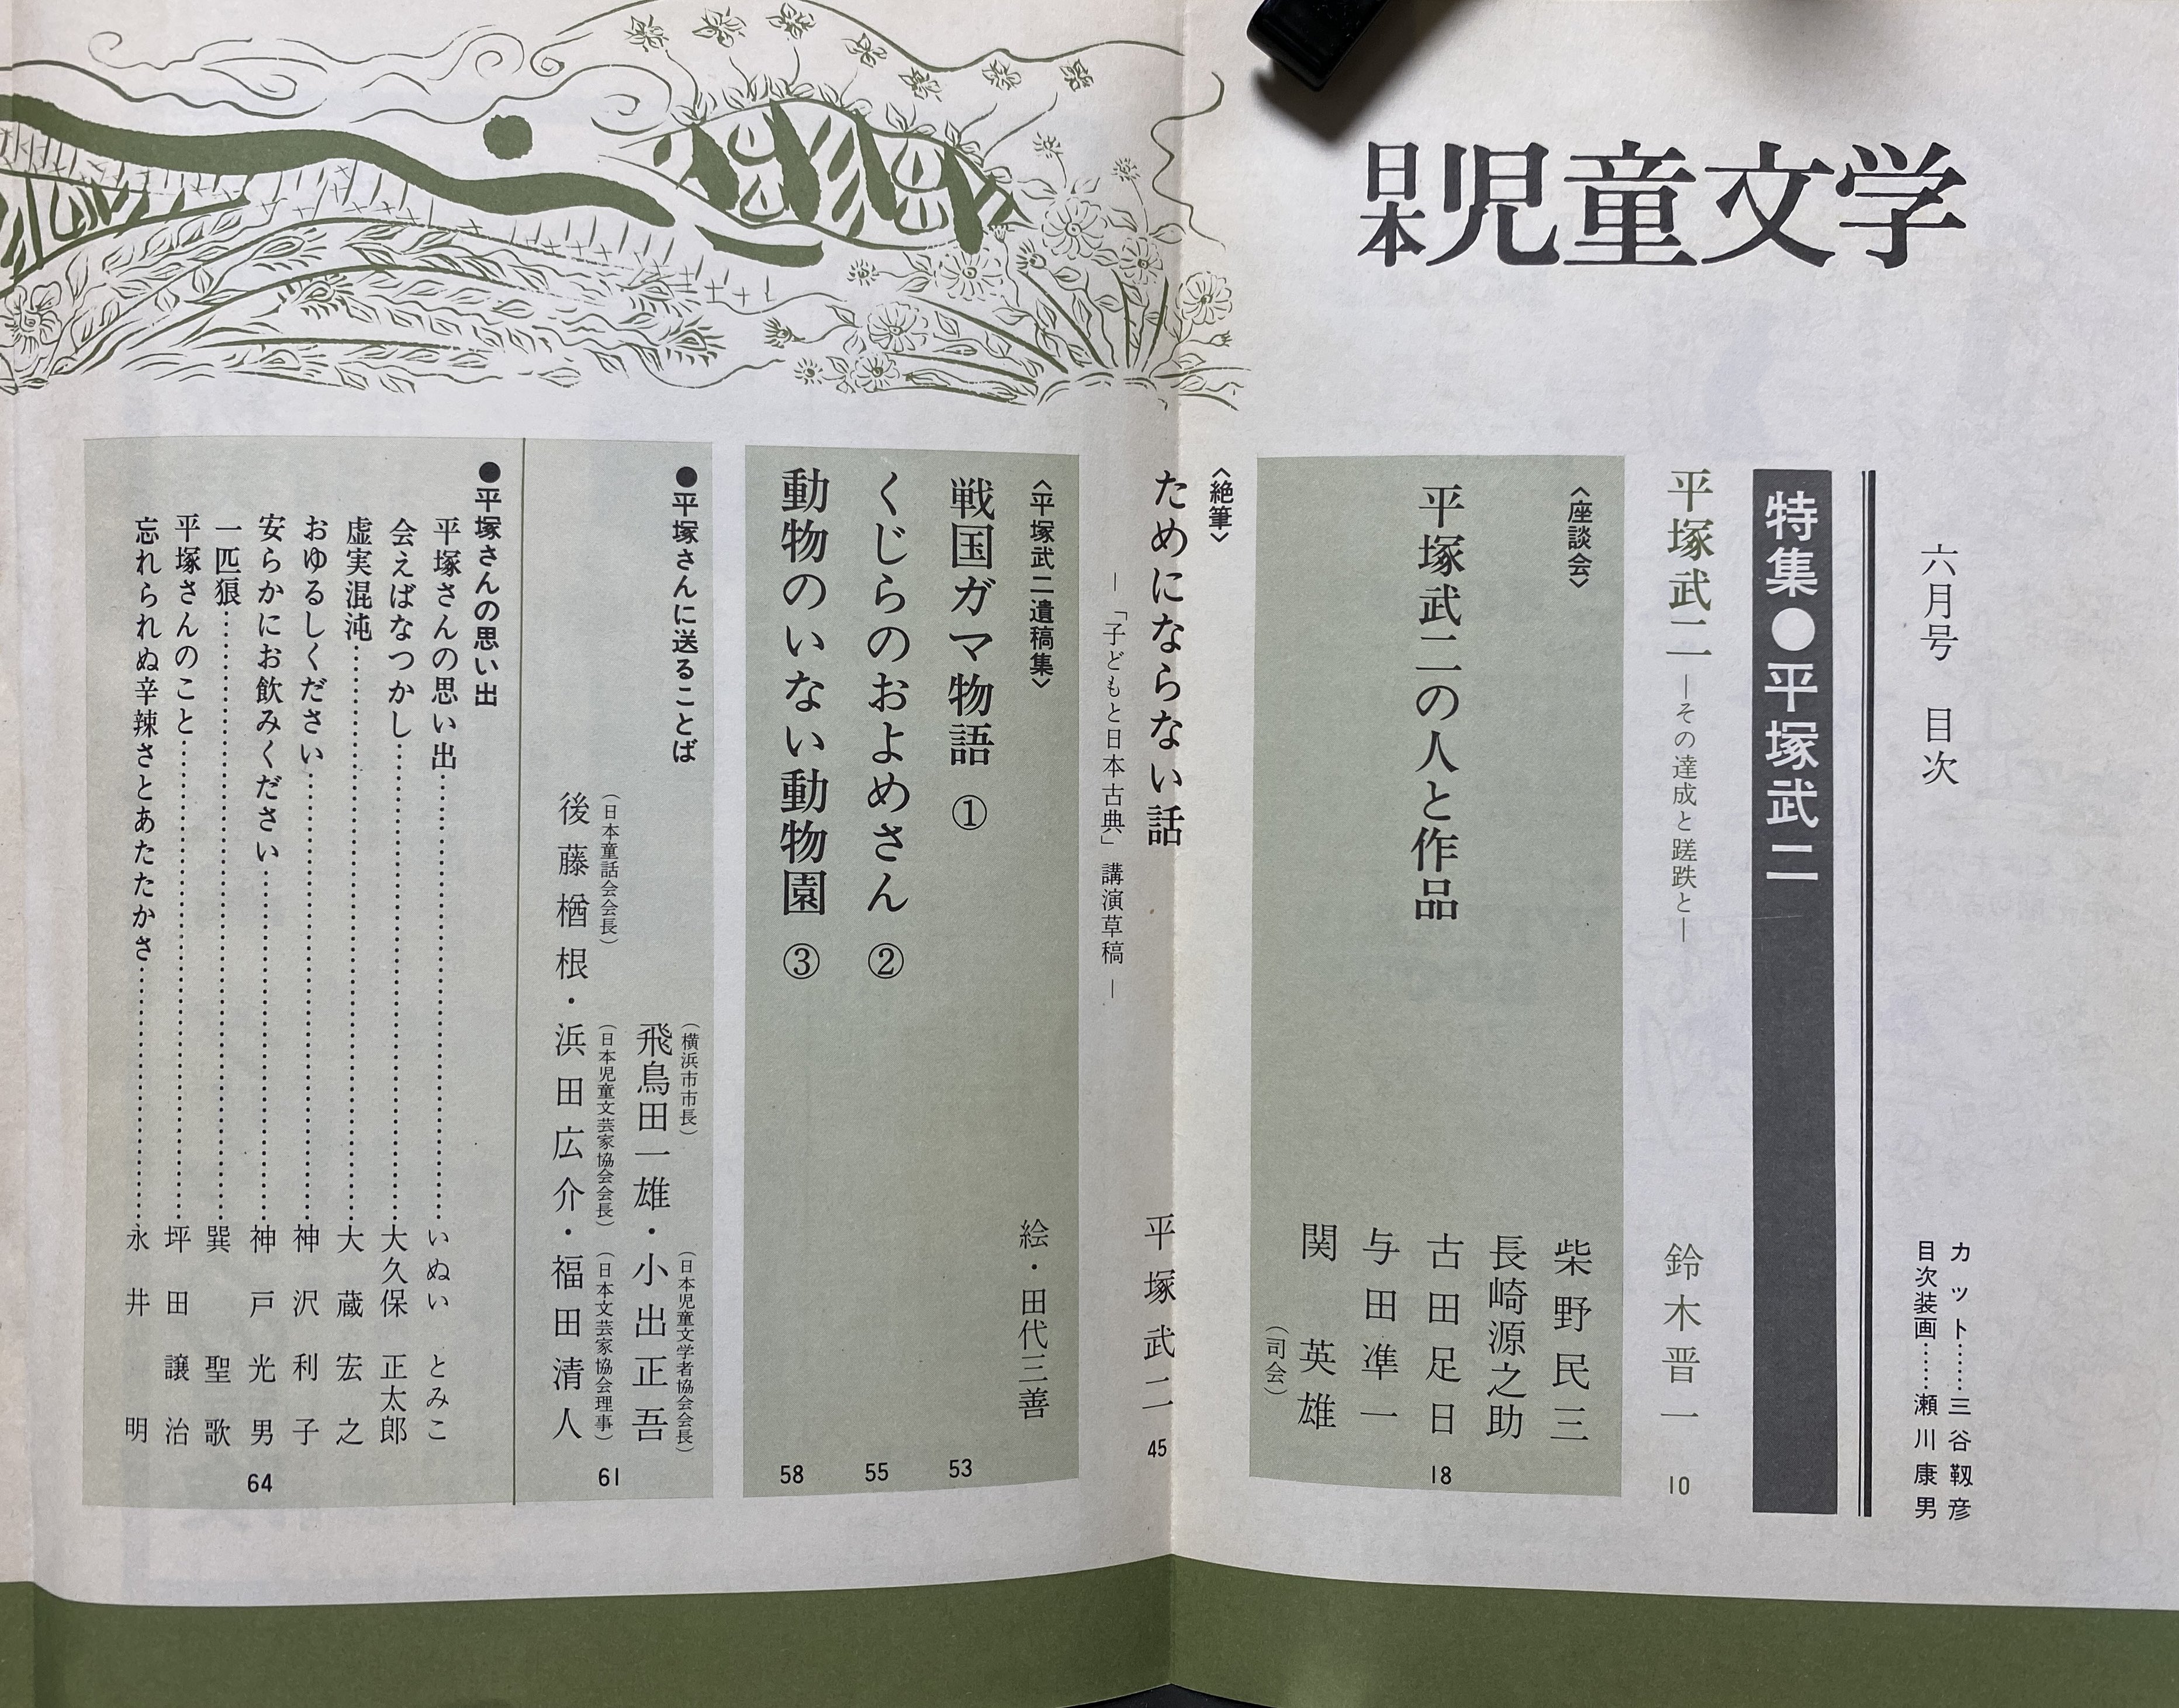 日本児童文学
六月号　目次
カット……三谷靱彦
目次装画……瀬川康男
特集●平塚武二
平塚武二 ―その達成と蹉跌と― 鈴木晋一 10
〈座談会〉
平塚武二の人と作品
柴野民三
長崎源之助
古田足日
与田凖一
関英雄
（司会）
18
〈絶筆〉
ためにならない話 平塚武二 45
―「子どもと日本古典」講演草稿―
〈平塚武二遺稿集〉 絵・田代三善
戦国ガマ物語 ① 53
くじらのおよめさん ② 55
動物のいない動物園 ③ 58
●平塚さんに送ることば
（横浜市市長） （日本児童文学者協会会長）
飛鳥田一雄・小出正吾
（日本童話会会長） （日本児童文芸家協会会長） （日本文芸家協会理事）
後藤楢根・浜田広介・福田清人
61
●平塚さんの思い出
平塚さんの思い出……いぬいとみこ
会えばなつかし……大久保正太郎
虚実混沌……大蔵宏之
おゆるしください……神沢利子
安らかにお飲みください……神戸光男
一匹狼……巽聖歌
平塚さんのこと……坪田譲治
忘れられぬ辛辣さとあたたかさ……永井明
64